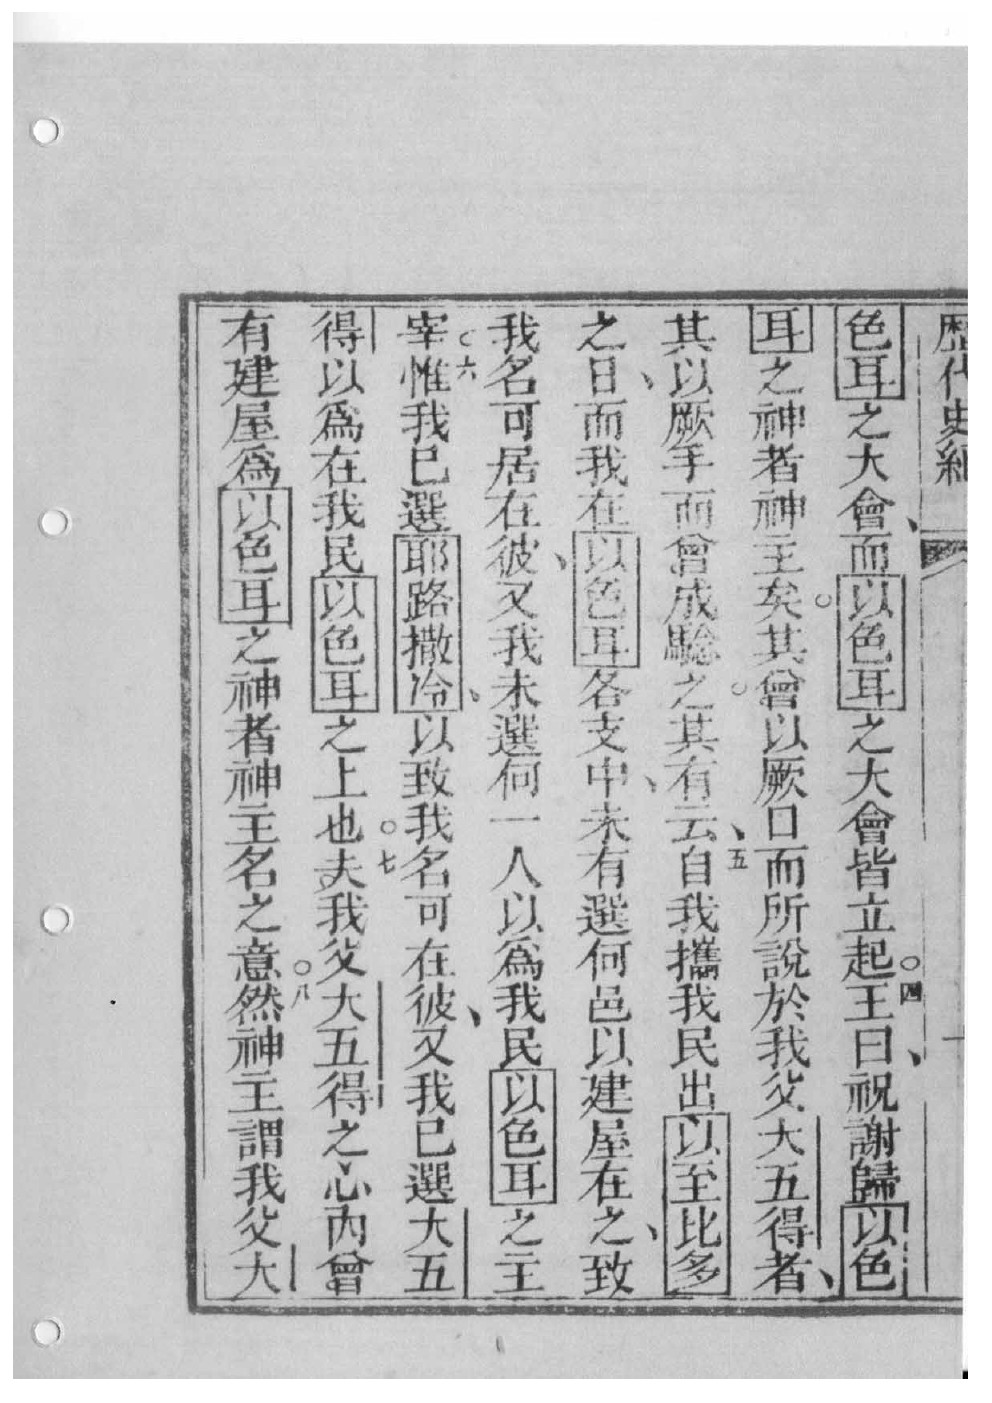 歷代史紀
一
色耳之大會、而以色耳之大會皆立起。四王曰、祝謝歸以色
耳之神者神主矣。其曾以厥口而所說於我父大五得者、
其以厥手而曾成驗之。其有云、五自我攜我民出以至比多
之日、而我在以色耳各支中、未有選何邑以建屋在之、致
我名可居在彼、又我未選何一人以爲我民以色耳之主
宰。六惟我已選耶路撒冷、以致我名可在彼、又我已選大五
得以爲在我民以色耳之上也。七夫我父大五得之心內曾
有建屋爲以色耳之神者神主名之意。八然神主謂我父大